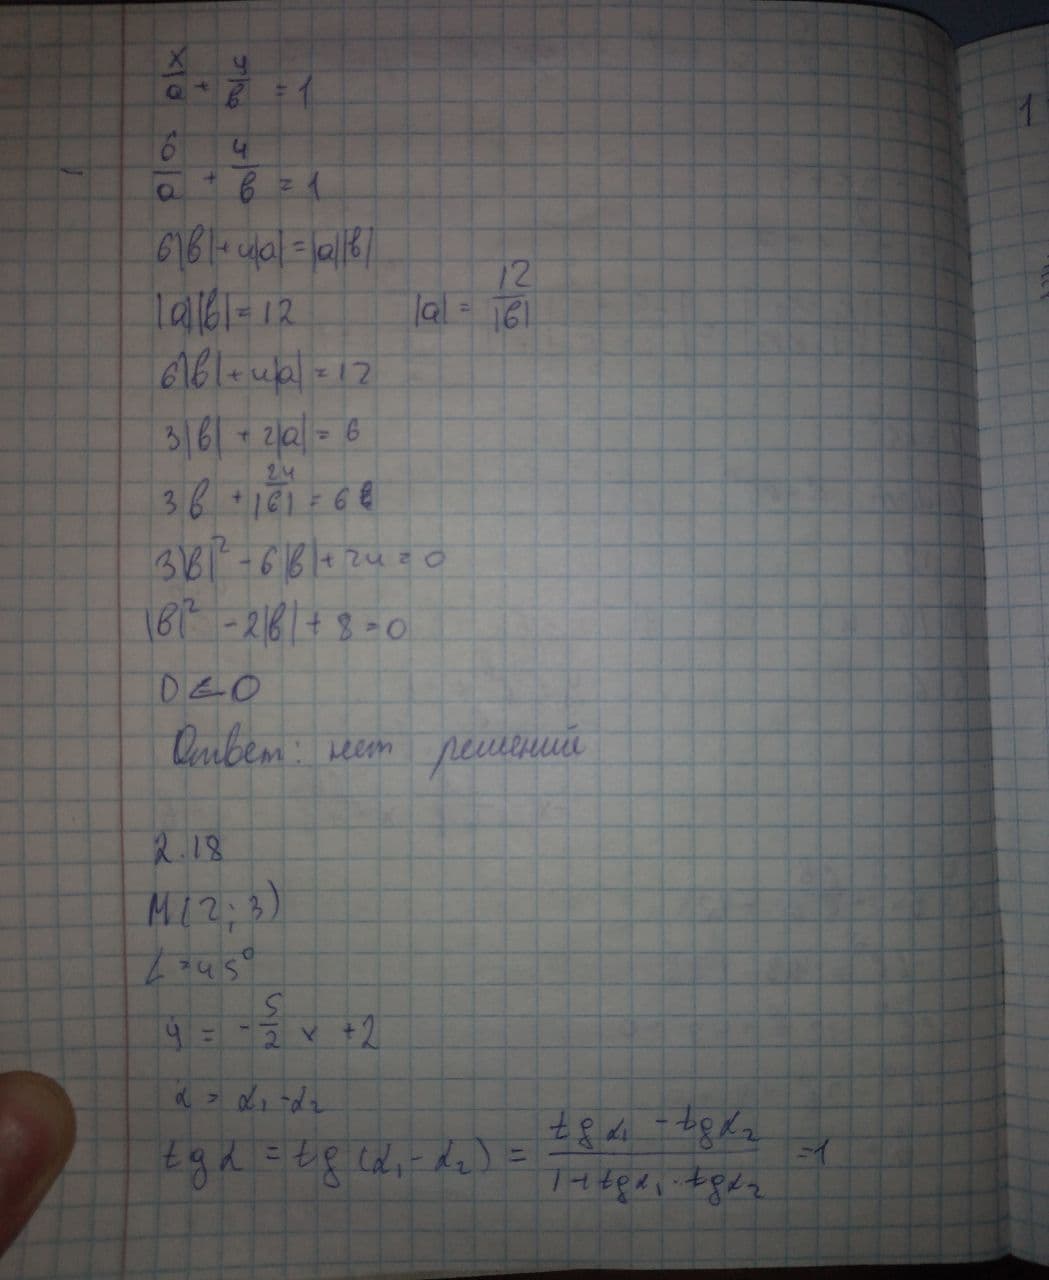 x/a + y/b = 1
1
6/a + 4/b = 1
6|b| + 4|a| = |a||b|
|a||b| = 12 |a| = 12/|b|
6|b| + 4|a| = 12
3|b| + 2|a| = 6
3b + 24/|b| = 6
3|b|² - 6|b| + 24 = 0
|b|² - 2|b| + 8 = 0
D < 0
Ответ: нет решений
2.18
M(2; 3)
∠ = 45°
y = -5/2 x + 2
α = α₁ - α₂
tg α = tg(α₁ - α₂) = (tg α₁ - tg α₂)/(1 + tg α₁ · tg α₂) = 1